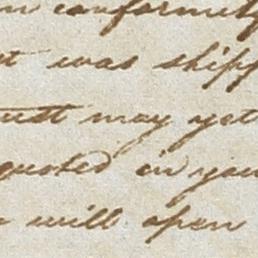 in conformity
t was shipp
ust may yet
quoted in you
will open